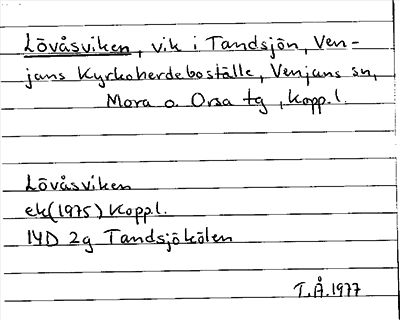 Lövåsviken, vik i Tandsjön, Ven-
jans Kyrkoherdeboställe, Venjans sn,
Mora o. Orsa tg, Kopp.l.
Lövåsviken
ek(1975) Kopp.l.
14D 2g Tandsjökölen
T.Å.1977